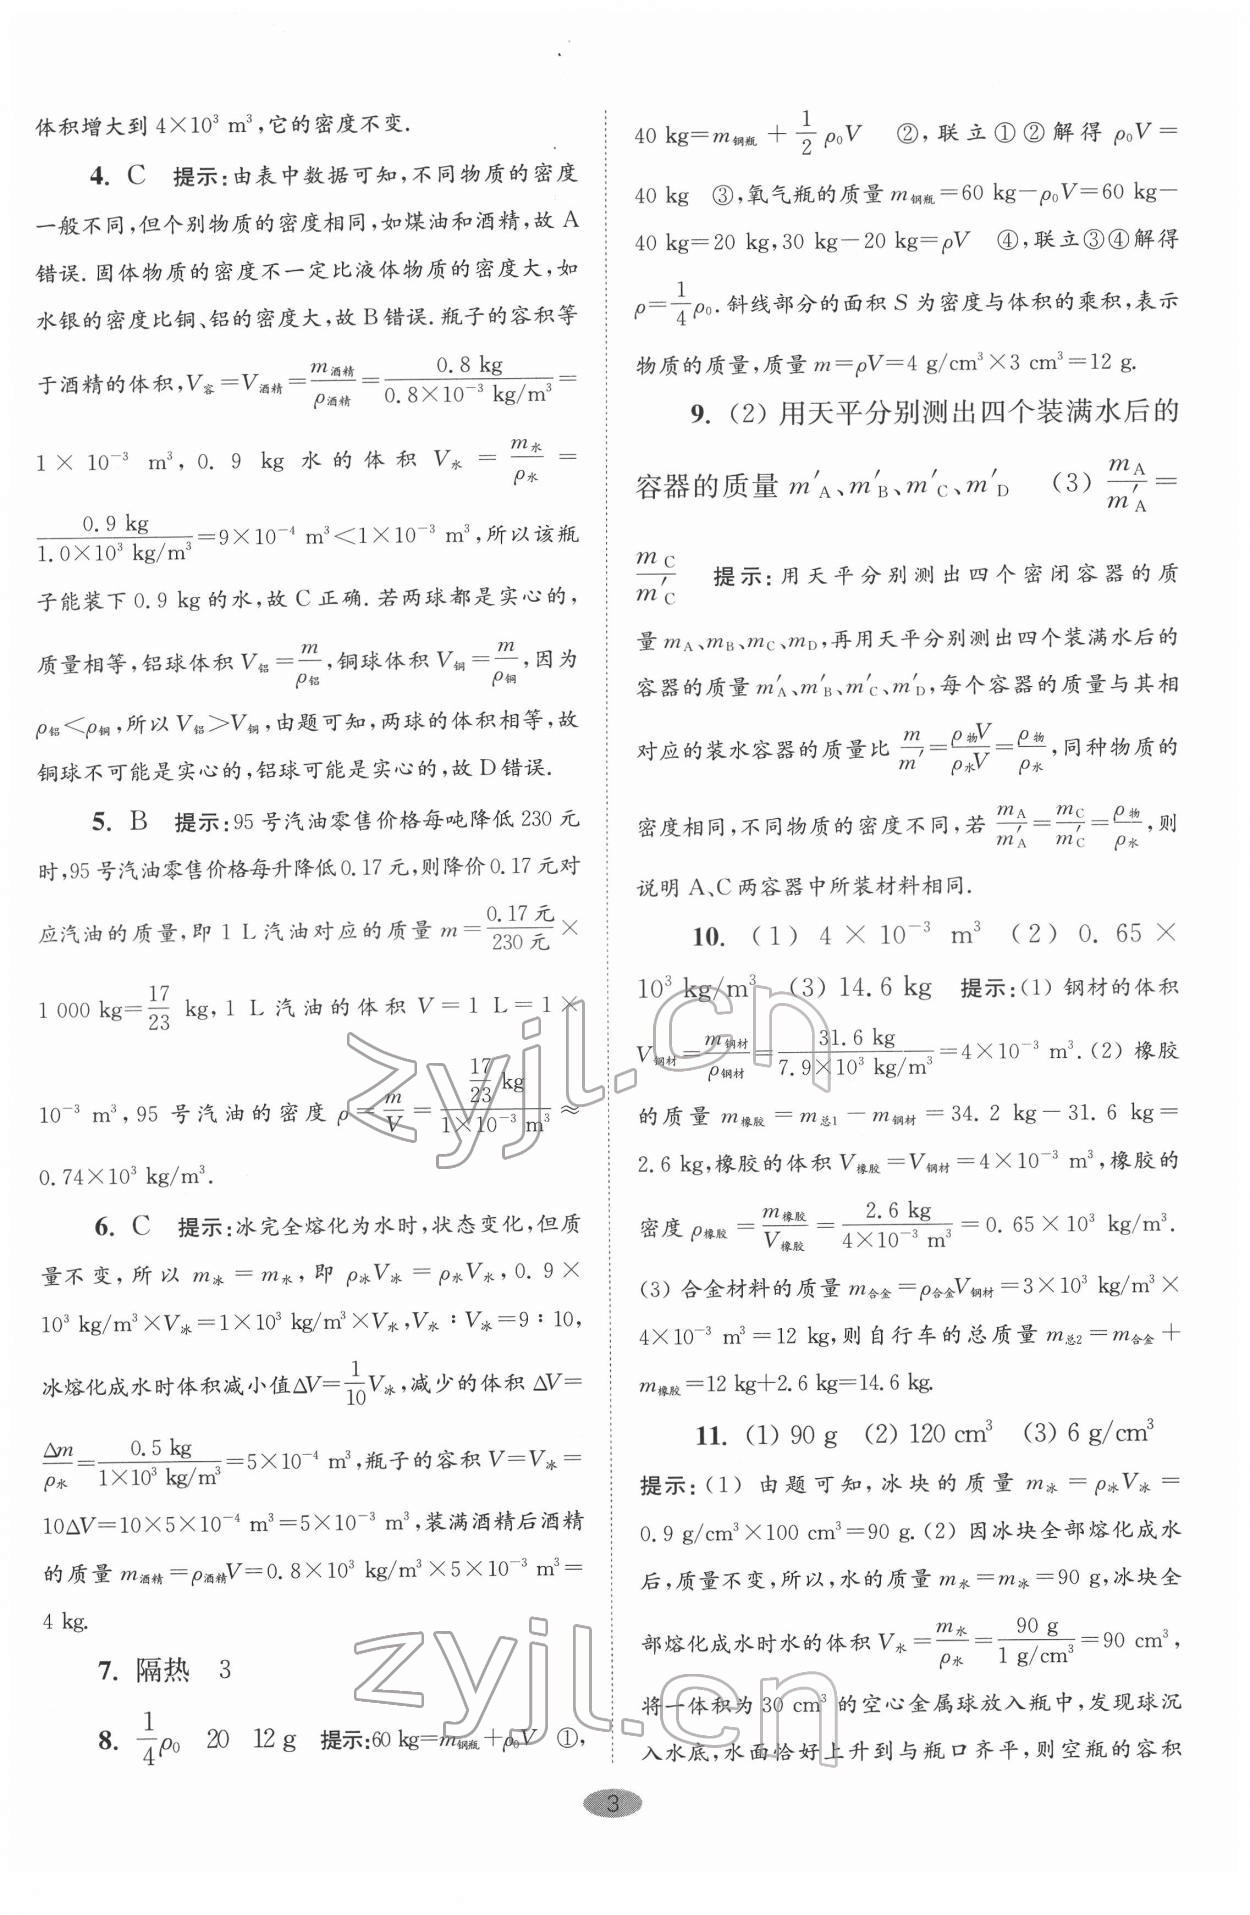 体积增大到 4×10³ m³,它的密度不变.
4. C 提示:由表中数据可知,不同物质的密度
一般不同,但个别物质的密度相同,如煤油和酒精,故 A
错误.固体物质的密度不一定比液体物质的密度大,如
水银的密度比铜、铝的密度大,故 B 错误.瓶子的容积等
于酒精的体积,V容=V酒精=m酒精/ρ酒精=0.8 kg/0.8×10⁻³ kg/m³=
1×10⁻³ m³,0.9 kg 水的体积 V水=m水/ρ水=
0.9 kg/1.0×10³ kg/m³=9×10⁻⁴ m³<1×10⁻³ m³,所以该瓶
子能装下 0.9 kg 的水,故 C 正确.若两球都是实心的,
质量相等,铝球体积 V铝=m/ρ铝,铜球体积 V铜=m/ρ铜,因为
ρ铝<ρ铜,所以 V铝>V铜,由题可知,两球的体积相等,故
铜球不可能是实心的,铝球可能是实心的,故 D 错误.
5. B 提示:95 号汽油零售价格每吨降低 230 元
时,95 号汽油零售价格每升降低 0.17 元,则降价 0.17 元对
应汽油的质量,即 1 L 汽油对应的质量 m=0.17 元/230 元×
1 000 kg=17/23 kg,1 L 汽油的体积 V=1 L=1×
10⁻³ m³,95 号汽油的密度 ρ=m/V=17/23 kg/1×10⁻³ m³≈
0.74×10³ kg/m³.
6. C 提示:冰完全熔化为水时,状态变化,但质
量不变,所以 m冰=m水,即 ρ冰V冰=ρ水V水,0.9×
10³ kg/m³×V冰=1×10³ kg/m³×V水,V水:V冰=9:10,
冰熔化成水时体积减小值ΔV=1/10V冰,减少的体积 ΔV=
Δm/ρ水=0.5 kg/1×10³ kg/m³=5×10⁻⁴ m³,瓶子的容积 V=V冰=
10ΔV=10×5×10⁻⁴ m³=5×10⁻³ m³,装满酒精后酒精
的质量 m酒精=ρ酒精V=0.8×10³ kg/m³×5×10⁻³ m³=
4 kg.
7. 隔热 3
8. 1/4ρ₀ 20 12 g 提示:60 kg=m钢瓶+ρ₀V ①,
40 kg=m钢瓶+1/2ρ₀V ②,联立①②解得 ρ₀V=
40 kg ③,氧气瓶的质量 m钢瓶=60 kg−ρ₀V=60 kg−
40 kg=20 kg,30 kg−20 kg=ρV ④,联立③④解得
ρ=1/4ρ₀.斜线部分的面积 S 为密度与体积的乘积,表示
物质的质量,质量 m=ρV=4 g/cm³×3 cm³=12 g.
9. (2) 用天平分别测出四个装满水后的
容器的质量 m′A、m′B、m′C、m′D (3) mA/m′A=
mC/m′C 提示:用天平分别测出四个密闭容器的质
量 mA、mB、mC、mD,再用天平分别测出四个装满水后的
容器的质量 m′A、m′B、m′C、m′D,每个容器的质量与其相
对应的装水容器的质量比 m/m′=ρ物V/ρ水V=ρ物/ρ水,同种物质的
密度相同,不同物质的密度不同,若 mA/m′A=mC/m′C=ρ物/ρ水,则
说明 A、C 两容器中所装材料相同.
10. (1) 4×10⁻³ m³ (2) 0.65×
10³ kg/m³ (3) 14.6 kg 提示:(1) 钢材的体积
V钢材=m钢材/ρ钢材=31.6 kg/7.9×10³ kg/m³=4×10⁻³ m³.(2) 橡胶
的质量 m橡胶=m总1−m钢材=34.2 kg−31.6 kg=
2.6 kg,橡胶的体积 V橡胶=V钢材=4×10⁻³ m³,橡胶的
密度 ρ橡胶=m橡胶/V橡胶=2.6 kg/4×10⁻³ m³=0.65×10³ kg/m³.
(3) 合金材料的质量 m合金=ρ合金V钢材=3×10³ kg/m³×
4×10⁻³ m³=12 kg,则自行车的总质量 m总2=m合金+
m橡胶=12 kg+2.6 kg=14.6 kg.
11. (1) 90 g (2) 120 cm³ (3) 6 g/cm³
提示:(1) 由题可知,冰块的质量 m冰=ρ冰V冰=
0.9 g/cm³×100 cm³=90 g.(2) 因冰块全部熔化成水
后,质量不变,所以,水的质量 m水=m冰=90 g,冰块全
部熔化成水时水的体积 V水=m水/ρ水=90 g/1 g/cm³=90 cm³,
将一体积为 30 cm³ 的空心金属球放入瓶中,发现球沉
入水底,水面恰好上升到与瓶口齐平,则空瓶的容积
3
zyjl.cn
zyjl.cn